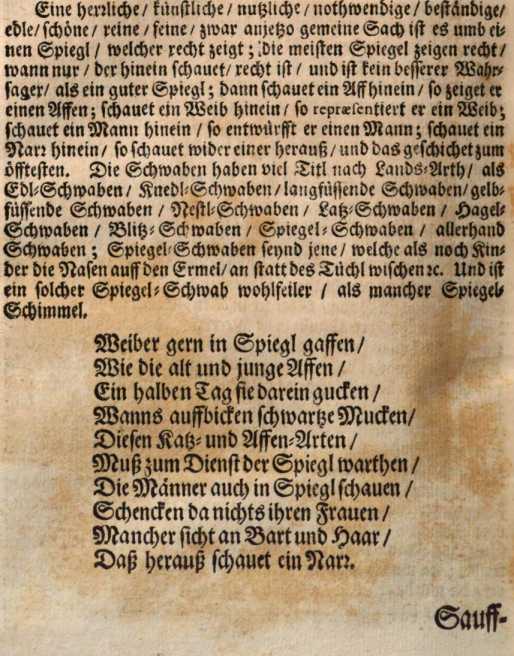 Eine herrliche / künstliche / nutzliche / nothwendige / beständige /
edle / schöne / reine / feine / zwar anjetzo gemeine Sach ist es umb ei-
nen Spiegl / welcher recht zeigt ; die meisten Spiegel zeigen recht /
wann nur / der hinein schauet / recht ist / und ist kein besserer Wahr-
sager / als ein guter Spiegel ; dann schauet ein Aff hinein / so zeiget er
einen Affen ; schauet ein Weib hinein / so repræsentiert er ein Weib ;
schauet ein Mann hinein / so entwürfft er einen Mann ; schauet ein
Narr hinein / so schauet wider einer herauß / und das geschichet zum
öfftesten. Die Schwaben haben viel Titl nach Lands-Arth / als
Edl-Schwaben / Knedl-Schwaben / langfüssende Schwaben / gelb-
füssende Schwaben / Nestl-Schwaben / Latz-Schwaben / Hagel-
Schwaben / Blitz-Schwaben / Spiegel-Schwaben / allerhand
Schwaben ; Spiegel-Schwaben seynd jene / welche als noch Kin-
der die Nasen auff den Ermel / an statt des Tüchl wischen ꝛc. Und ist
ein solcher Spiegel-Schwab wohlfeiler / als mancher Spiegel-
Schimmel.
Weiber gern in Spiegl gaffen /
Wie die alt und junge Affen /
Ein halben Tag sie darein gucken /
Wanns auffbicken schwartze Mucken /
Diesen Katz- und Affen-Arten /
Muß zum Dienst der Spiegl warthen /
Die Männer auch in Spiegl schauen /
Schencken da nichts ihren Frauen /
Mancher sicht an Bart und Haar /
Daß herauß schauet ein Narr.
Sauff-